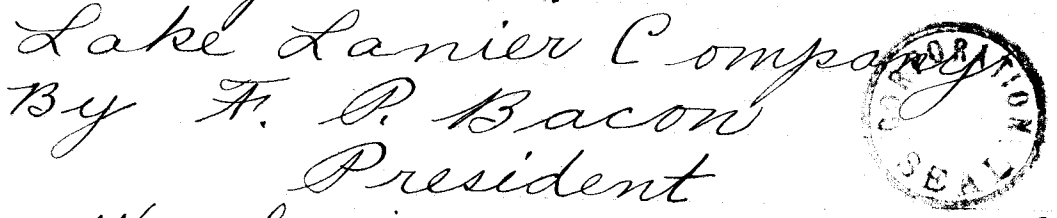 Lake Lanier Company
By F. P. Bacon
President
CORPORATION
SEAL